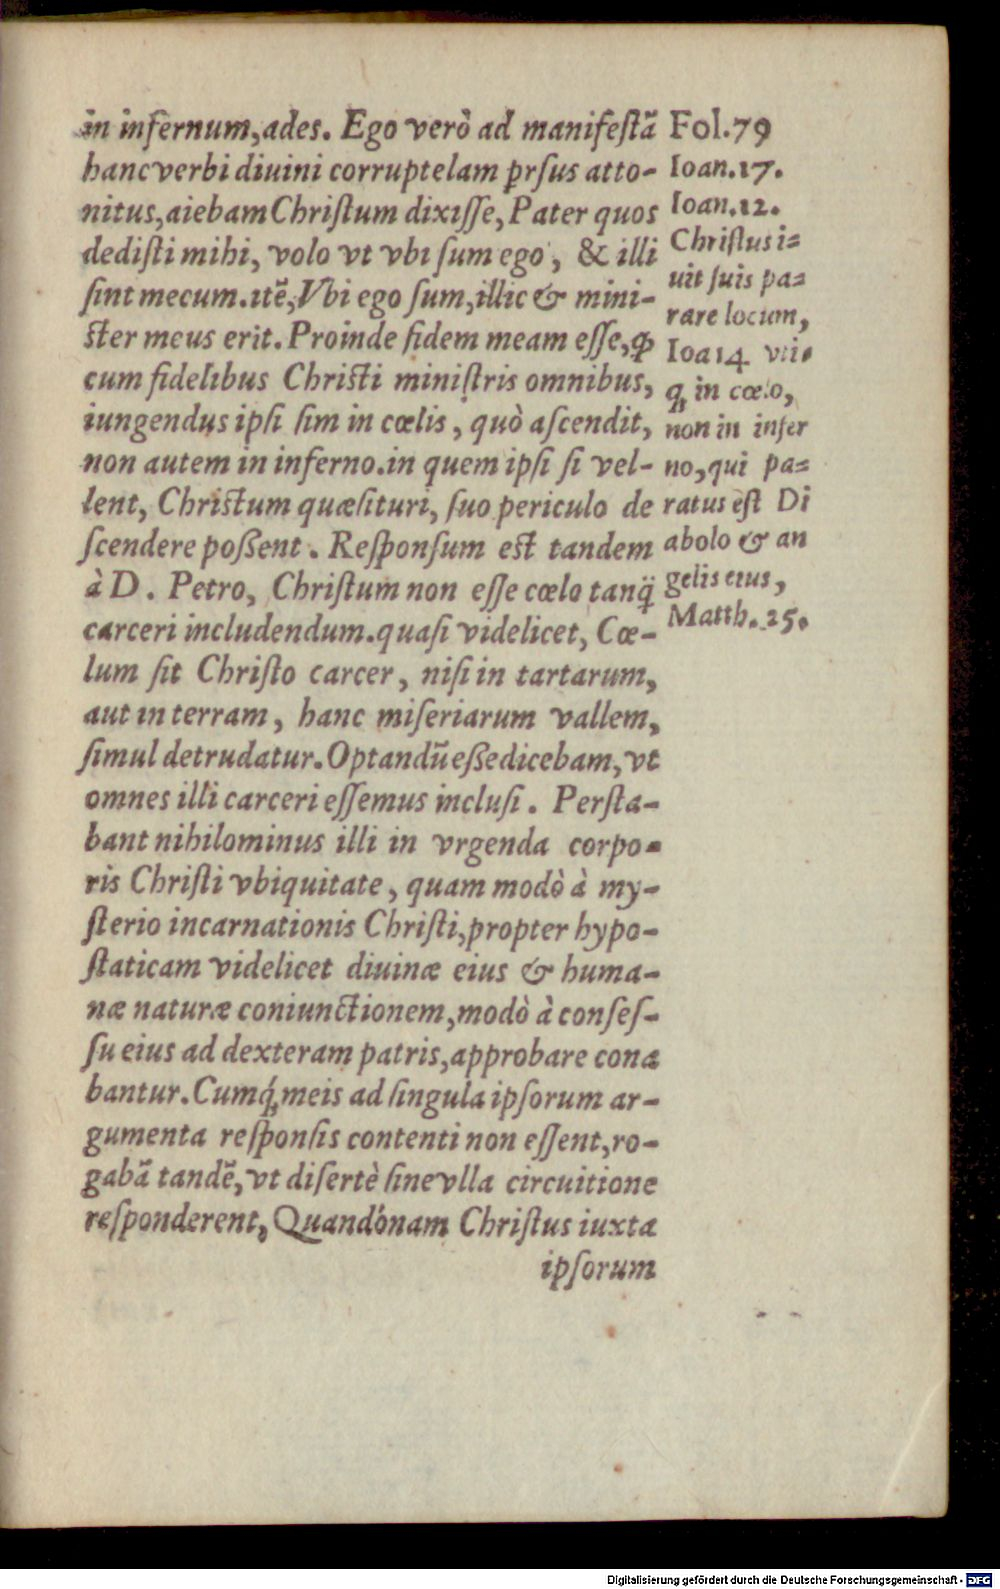 in infernum, ades. Ego verò ad manifestã
hanc verbi diuini corruptelam p̱rsus atto-
nitus, aiebam Christum dixisse, Pater quos
dedisti mihi, volo vt vbi sum ego, & illi
sint mecum. itẽ, Vbi ego sum, illic & mini-
ster meus erit. Proinde fidem meam esse, ꝙ
cum fidelibus Christi ministris omnibus,
iungendus ipsi sim in cœlis, quò ascendit,
non autem in inferno. in quem ipsi si vel-
lent, Christum quæsituri, suo periculo de
scendere poßent. Responsum est tandem
à D. Petro, Christum non esse cœlo tanq̈
carceri includendum. quasi videlicet, Cœ-
lum sit Christo carcer, nisi in tartarum,
aut in terram, hanc miseriarum vallem,
simul detrudatur. Optandũ eße dicebam, vt
omnes illi carceri essemus inclusi. Persta-
bant nihilominus illi in vrgenda corpo-
ris Christi vbiquitate, quam modò à my-
sterio incarnationis Christi, propter hypo-
staticam videlicet diuinæ eius & huma-
næ naturæ coniunctionem, modò à conses-
su eius ad dexteram patris, approbare cona
bantur. Cumq́; meis ad singula ipsorum ar-
gumenta responsis contenti non essent, ro-
gabã tandẽ, vt disertè sine vlla circuitione
responderent, Quandónam Christus iuxta
ipsorum
Fol. 79
Ioan. 17.
Ioan. 12.
Christus i-
uit suis pa-
rare locum,
Ioa 14 vti-
q; in cœlo,
non in infer
no, qui pa-
ratus est Di
abolo & an
gelis eius,
Matth. 25.
Digitalisierung gefördert durch die Deutsche Forschungsgemeinschaft - DFG